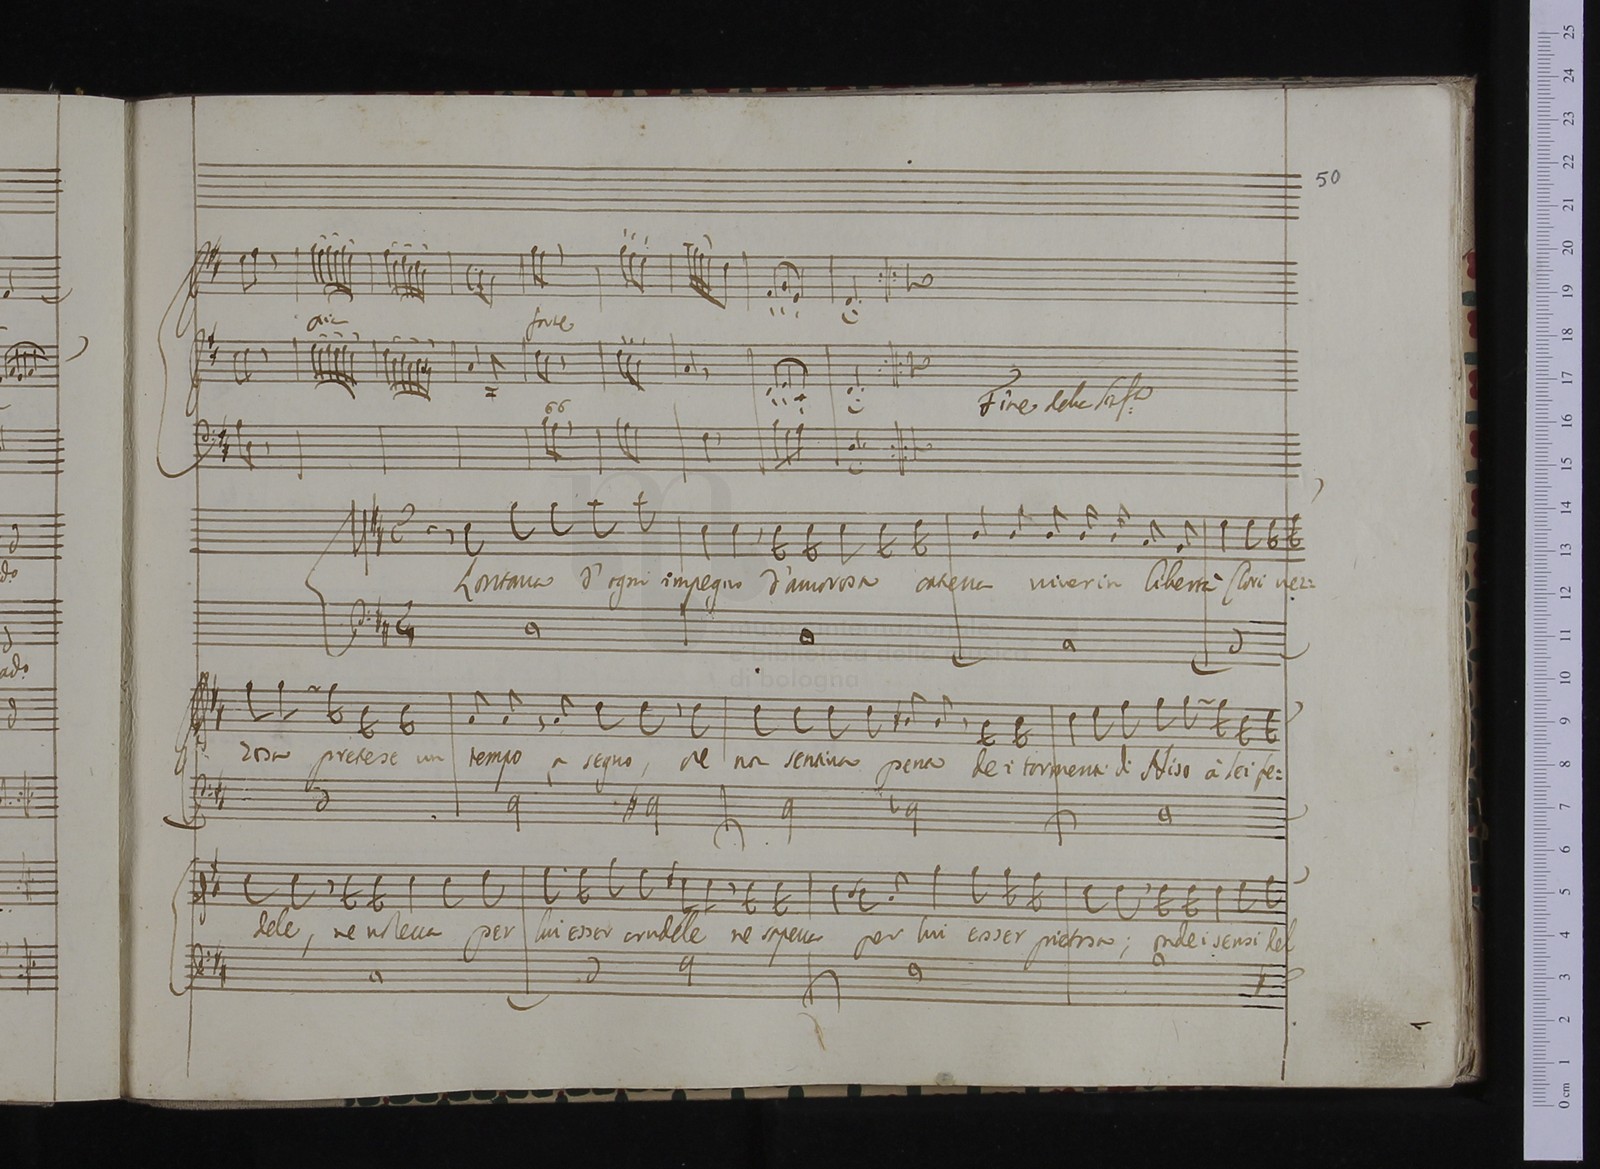 50
pia
forte
66
Fine della Sinf.a
Lontana d'ogni impegno d'amorosa catena viver in libertà Clori vez=
museo internazionale
e biblioteca della musica
di bologna
zosa pretese un tempo a segno, che non sentiva pena de i tormenti di Niso à lei fe=
dele, ne voleva per lui esser crudele ne sapeva per lui esser pietosa; onde i sensi del
25
24
23
22
21
20
19
18
17
16
15
14
13
12
11
10
9
8
7
6
5
4
3
2
1
0 cm